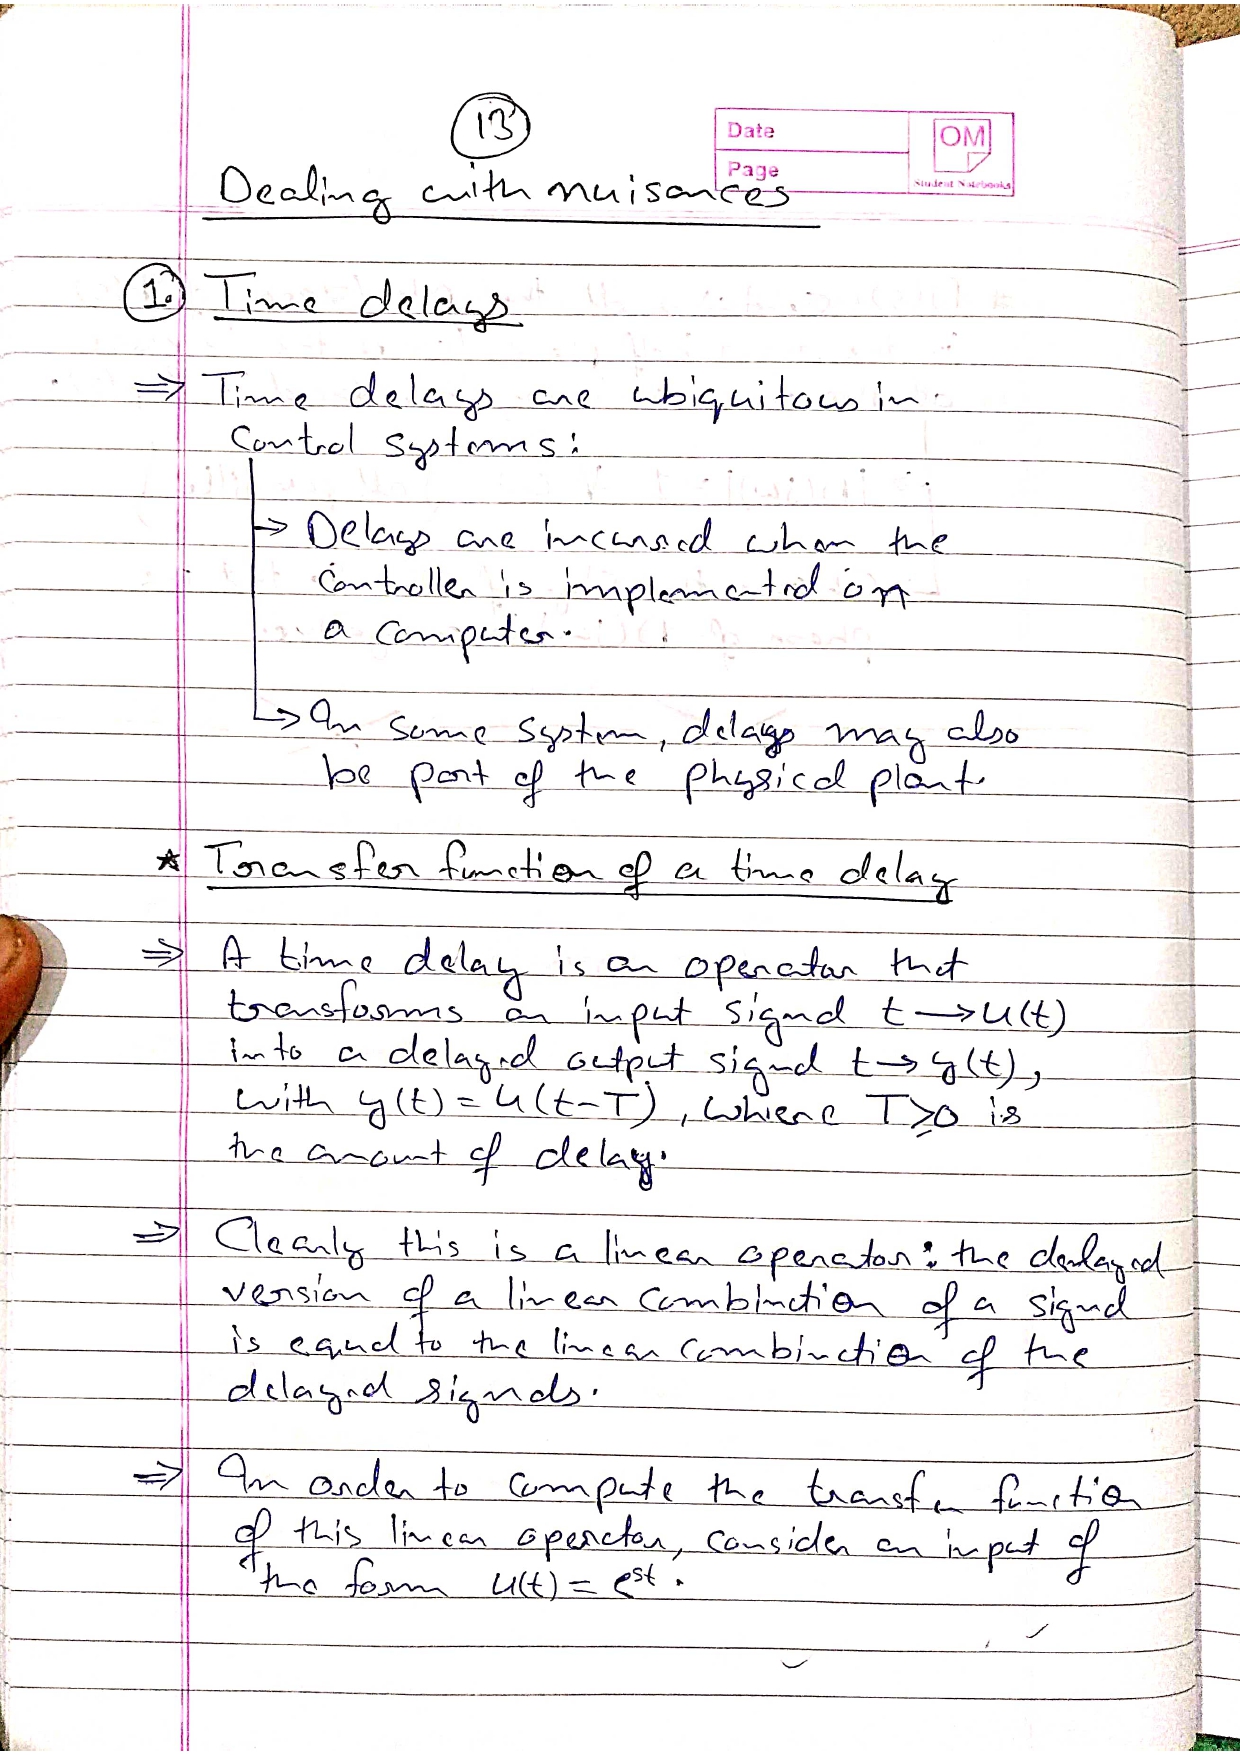 13
Date
OM
Page
Student Notebooks
Dealing with nuisances
1. Time delays
⇒ Time delays are ubiquitous in
Control systems:
→ Delays are incurred when the
controller is implemented on
a computer.
→ In some system, delays may also
be part of the physical plant.
★ Transfer function of a time delay
⇒ A time delay is an operator that
transforms an input signal t → u(t)
into a delayed output signal t → y(t),
with y(t) = u(t-T), where T ≥ 0 is
the amount of delay.
⇒ Clearly this is a linear operator: the delayed
version of a linear combination of a signal
is equal to the linear combination of the
delayed signals.
⇒ In order to compute the transfer function
of this linear operator, consider an input of
the form u(t) = e^st.